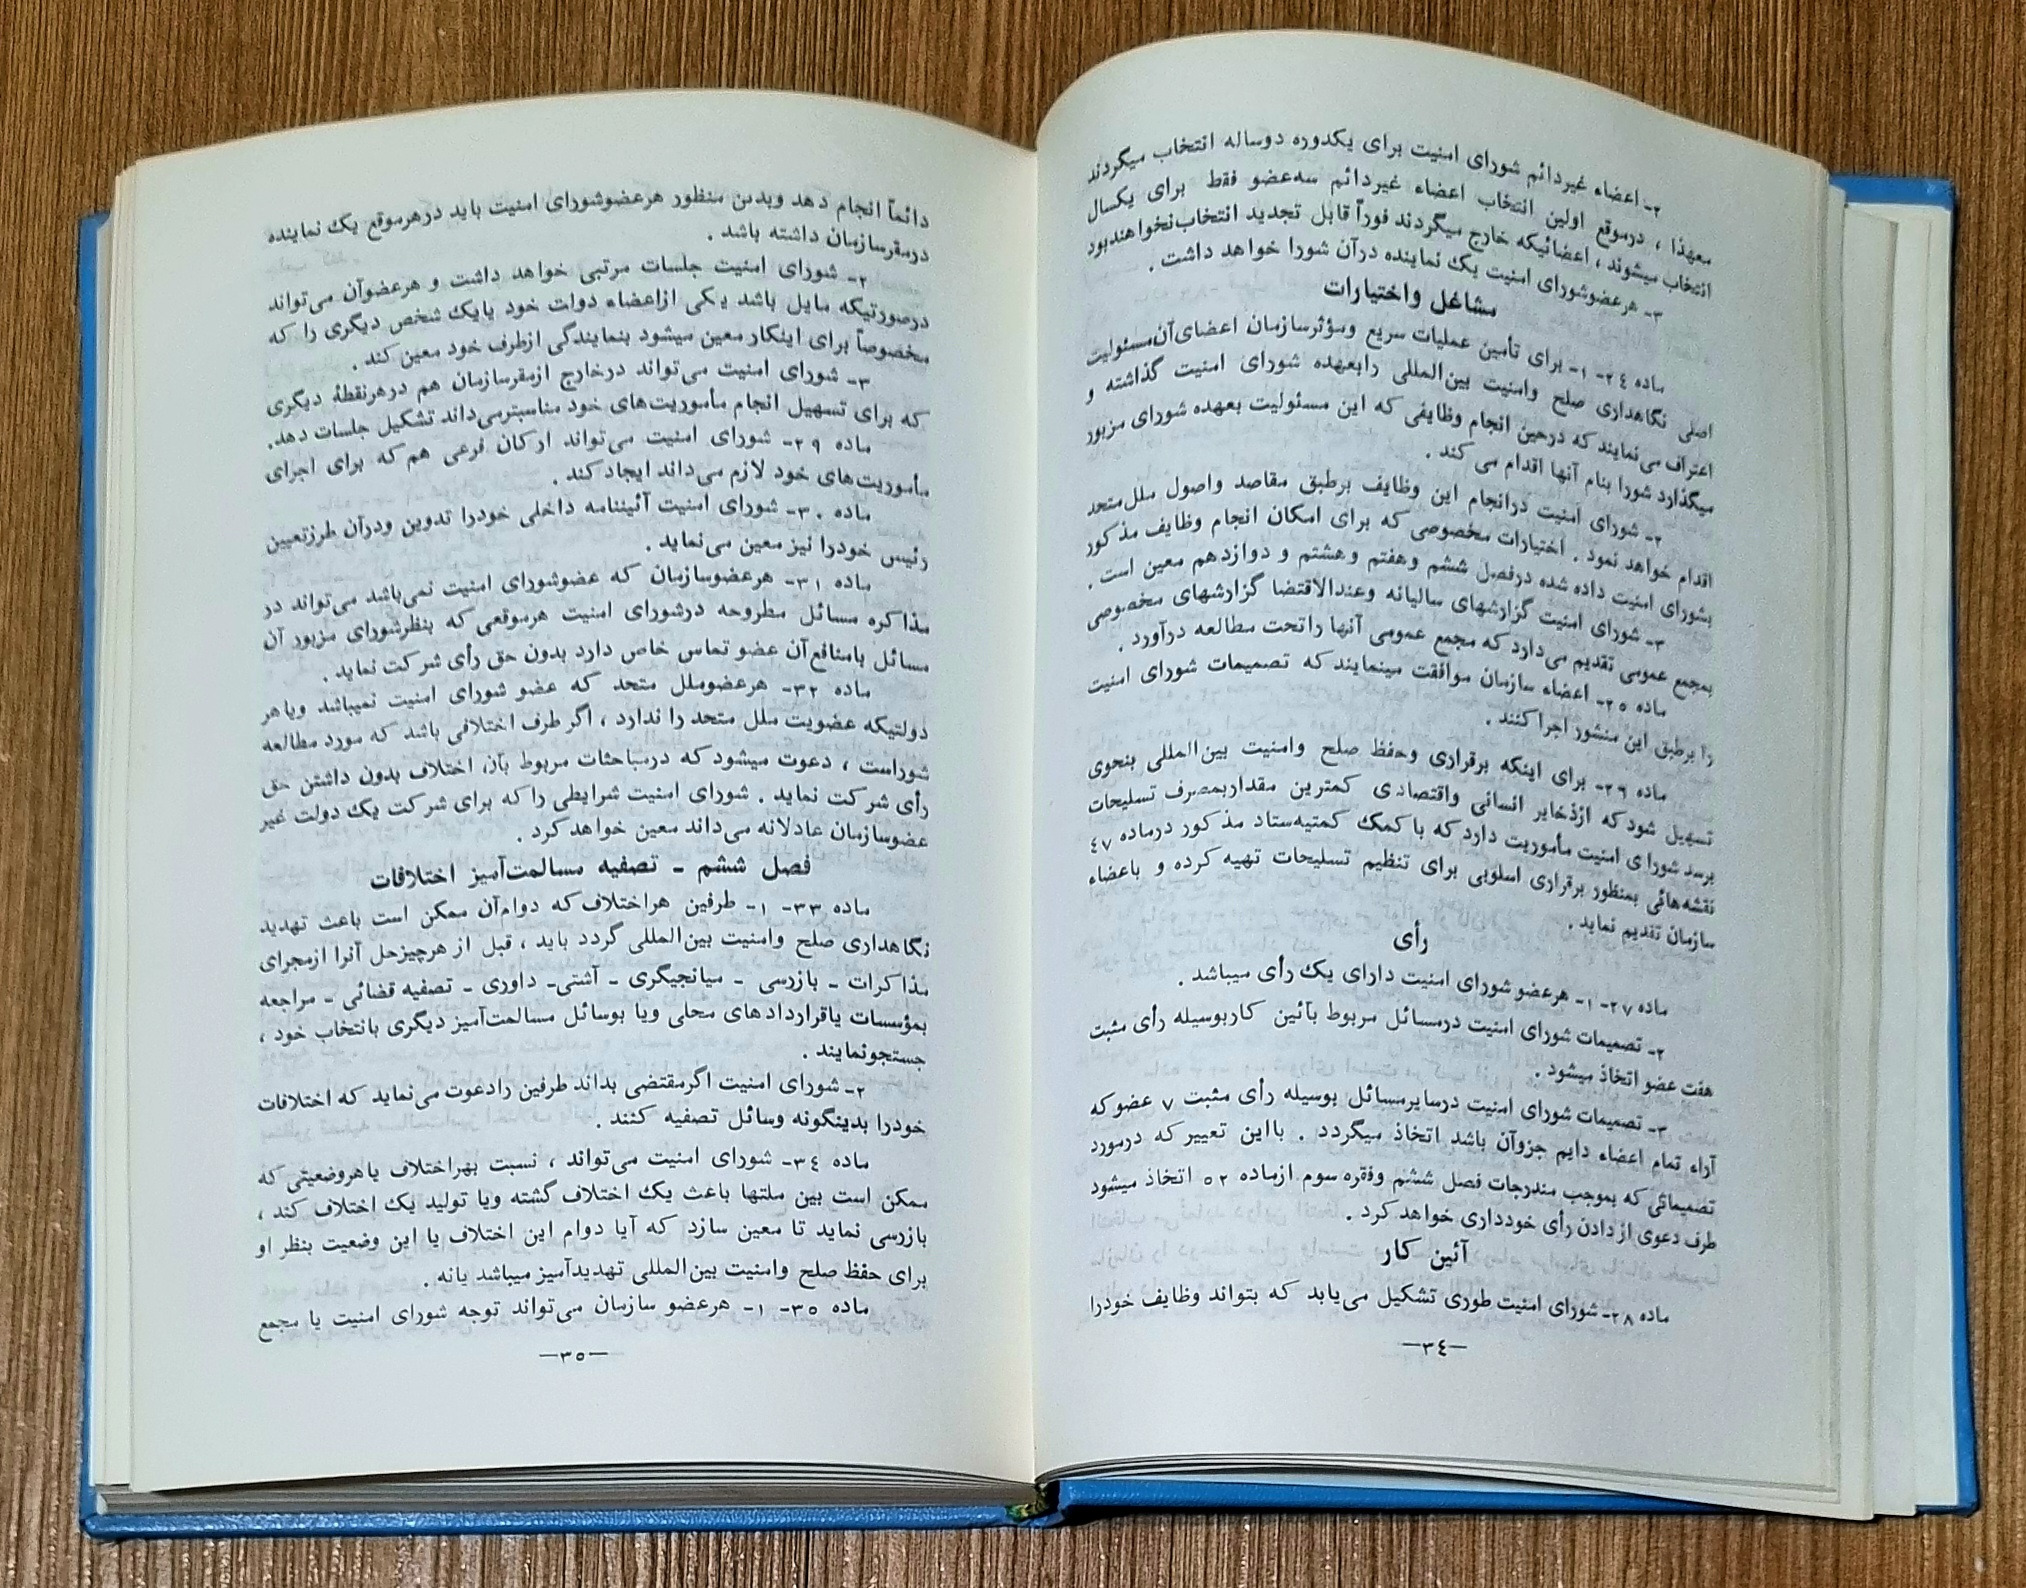 ۲ـ اعضاء غیردائم شورای امنیت برای یکدوره دوساله انتخاب میگردند
معهذا ، درموقع اولین انتخاب اعضاء غیردائم سه‌عضو فقط برای یکسال
انتخاب میشوند ، اعضائیکه خارج میگردند فوراً قابل تجدید انتخاب‌نخواهندبود
۳ـ هرعضوشورای امنیت یک نماینده درآن شورا خواهد داشت .
مشاغل واختیارات
ماده ۲٤ـ ۱ـ برای تأمین عملیات سریع ومؤثرسازمان اعضای‌آن‌مسئولیت
اصلی نگاهداری صلح وامنیت بین‌المللی رابعهده شورای امنیت گذاشته و
اعتراف می‌نمایند که درحین انجام وظایفی که این مسئولیت بعهده شورای مزبور
میگذارد شورا بنام آنها اقدام می کند .
۲ـ شورای امنیت درانجام این وظایف برطبق مقاصد واصول ملل‌متحد
اقدام خواهد نمود . اختیارات مخصوصی که برای امکان انجام وظایف مذکور
بشورای امنیت داده شده درفصل ششم وهفتم وهشتم و دوازدهم معین است .
۳ـ شورای امنیت گزارشهای سالیانه وعندالاقتضا گزارشهای مخصوصی
بمجمع عمومی تقدیم می‌دارد که مجمع عمومی آنها راتحت مطالعه درآورد .
ماده ۲۵ـ اعضاء سازمان موافقت مینمایند که تصمیمات شورای امنیت
را برطبق این منشور اجرا کنند .
ماده ۲۶ـ برای اینکه برقراری وحفظ صلح وامنیت بین‌المللی بنحوی
تسهیل شود که ازذخایر انسانی واقتصادی کمترین مقداربمصرف تسلیحات
برسد شورای امنیت مأموریت دارد که با کمک کمتیه‌ستاد مذکور درماده ٤۷
نقشه‌هائی بمنظور برقراری اسلوبی برای تنظیم تسلیحات تهیه کرده و باعضاء
سازمان تقدیم نماید .
رأی
ماده ۲۷ـ ۱ـ هرعضو شورای امنیت دارای یک رأی میباشد .
۲ـ تصمیمات شورای امنیت درمسائل مربوط بآئین کاربوسیله رأی مثبت
هفت عضو اتخاذ میشود .
۳ـ تصمیمات شورای امنیت درسایرمسائل بوسیله رأی مثبت ۷ عضوکه
آراء تمام اعضاء دایم جزوآن باشد اتخاذ میگردد . بااین تعبیر که درمورد
تصمیماتی که بموجب مندرجات فصل ششم وفقره سوم ازماده ۵۲ اتخاذ میشود
طرف دعوی از دادن رأی خودداری خواهد کرد .
آئین کار
ماده ۲۸ـ شورای امنیت طوری تشکیل می‌یابد که بتواند وظایف خودرا
—۳٤—
دائماً انجام دهد وبدین منظور هرعضوشورای امنیت باید درهرموقع یک نماینده
درمقرسازمان داشته باشد .
۲ـ شورای امنیت جلسات مرتبی خواهد داشت و هرعضوآن می‌تواند
درصورتیکه مایل باشد یکی ازاعضاء دولت خود یایک شخص دیگری را که
مخصوصاً برای اینکار معین میشود بنمایندگی ازطرف خود معین کند .
۳ـ شورای امنیت می‌تواند درخارج ازمقرسازمان هم درهرنقطهٔ دیگری
که برای تسهیل انجام مأموریت‌های خود مناسبترمی‌داند تشکیل جلسات دهد.
ماده ۲۹ـ شورای امنیت می‌تواند ارکان فرعی هم که برای اجرای
مأموریت‌های خود لازم می‌داند ایجاد کند .
ماده ۳۰ـ شورای امنیت آئیننامه داخلی خودرا تدوین ودرآن طرزتعیین
رئیس خودرا نیز معین می‌نماید .
ماده ۳۱ـ هرعضوسازمان که عضوشورای امنیت نمی‌باشد می‌تواند در
مذاکره مسائل مطروحه درشورای امنیت هرموقعی که بنظرشورای مزبور آن
مسائل بامنافع‌آن عضو تماس خاص دارد بدون حق رأی شرکت نماید .
ماده ۳۲ـ هرعضوملل متحد که عضو شورای امنیت نمیباشد ویاهر
دولتیکه عضویت ملل متحد را ندارد ، اگر طرف اختلافی باشد که مورد مطالعه
شوراست ، دعوت میشود که درمباحثات مربوط بآن اختلاف بدون داشتن حق
رأی شرکت نماید . شورای امنیت شرایطی را که برای شرکت یک دولت غیر
عضوسازمان عادلانه می‌داند معین خواهد کرد .
فصل ششم ـ تصفیه مسالمت‌آمیز اختلافات
ماده ۳۳ـ ۱ـ طرفین هراختلاف که دوام‌آن ممکن است باعث تهدید
نگاهداری صلح وامنیت بین‌المللی گردد باید ، قبل از هرچیزحل آنرا ازمجرای
مذاکرات ـ بازرسی ـ میانجیگری ـ آشتی ـ داوری ـ تصفیه قضائی ـ مراجعه
بمؤسسات یاقراردادهای محلی ویا بوسائل مسالمت‌آمیز دیگری بانتخاب خود ،
جستجونمایند .
۲ـ شورای امنیت اگرمقتضی بداند طرفین رادعوت می‌نماید که اختلافات
خودرا بدینگونه وسائل تصفیه کنند .
ماده ۳٤ـ شورای امنیت می‌تواند ، نسبت بهراختلاف یاهروضعیتی که
ممکن است بین ملتها باعث یک اختلاف گشته ویا تولید یک اختلاف کند ،
بازرسی نماید تا معین سازد که آیا دوام این اختلاف یا این وضعیت بنظر او
برای حفظ صلح وامنیت بین‌المللی تهدیدآمیز میباشد یانه .
ماده ۳۵ـ ۱ـ هرعضو سازمان می‌تواند توجه شورای امنیت یا مجمع
—۳۵—